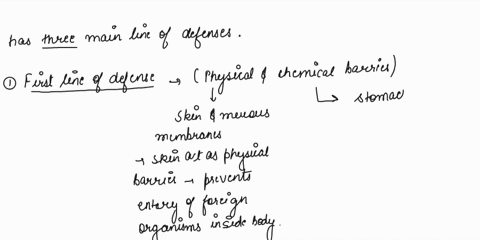 has three main line of defenses.
① First line of defense → (Physical & chemical barries)
↓
↳ stomac
skin & mucous
membranes
→ skin act as physical
barries → prevents
entery of foreign
organisms inside body.